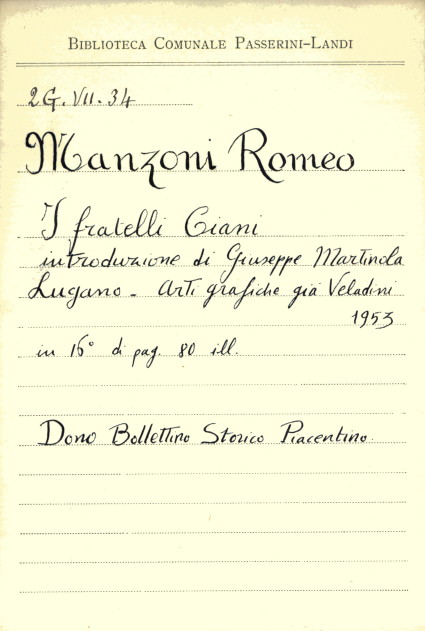 BIBLIOTECA COMUNALE PASSERINI-LANDI
2G.VII.34
Manzoni Romeo
I fratelli Ciani
introduzione di Giuseppe Martinola
Lugano - Arti grafiche già Veladini
1953
in 16° di pag. 80 ill.
Dono Bollettino Storico Piacentino